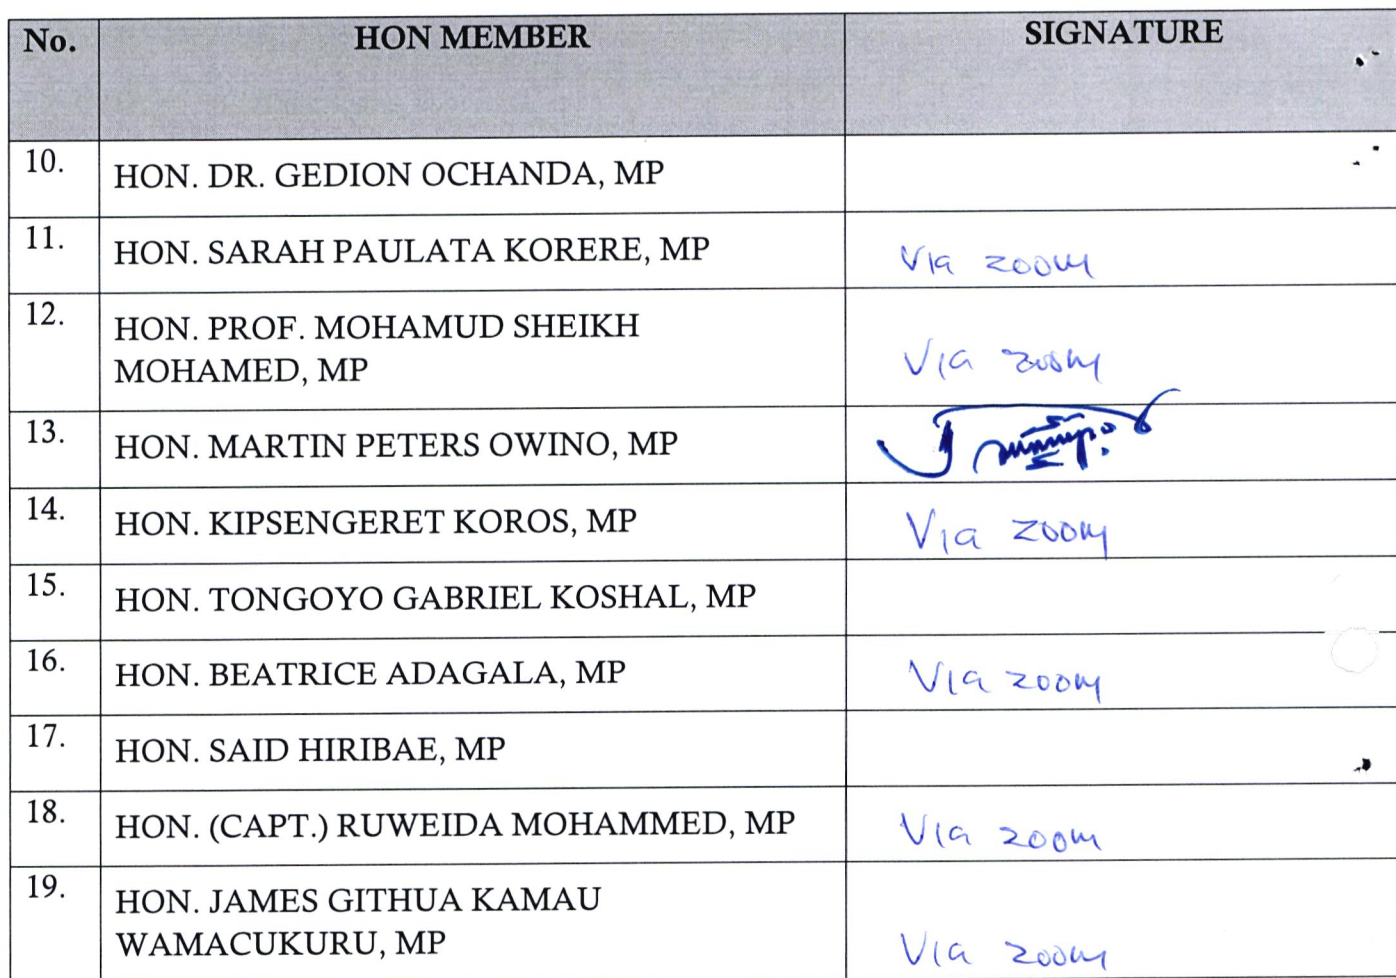 No. HON MEMBER SIGNATURE
10. HON. DR. GEDION OCHANDA, MP
11. HON. SARAH PAULATA KORERE, MP Via zoom
12. HON. PROF. MOHAMUD SHEIKH
MOHAMED, MP Via zoom
13. HON. MARTIN PETERS OWINO, MP
14. HON. KIPSENGERET KOROS, MP Via zoom
15. HON. TONGOYO GABRIEL KOSHAL, MP
16. HON. BEATRICE ADAGALA, MP Via zoom
17. HON. SAID HIRIBAE, MP
18. HON. (CAPT.) RUWEIDA MOHAMMED, MP Via zoom
19. HON. JAMES GITHUA KAMAU
WAMACUKURU, MP Via zoom